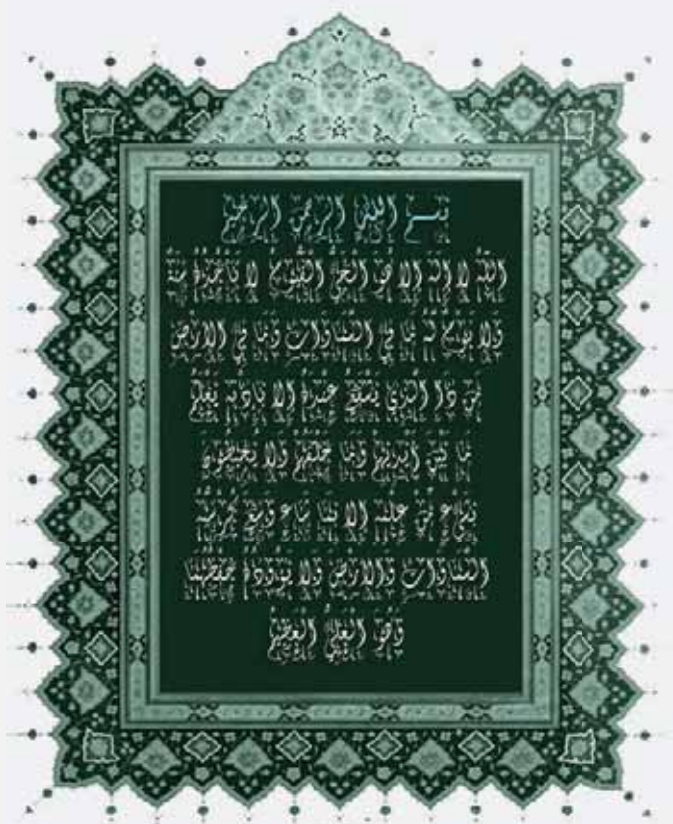 بسم الله الرحمن الرحيم
اللَّهُ لا إِلَهَ إِلا هُوَ الْحَيُّ الْقَيُّومُ لا تَأْخُذُهُ سِنَةٌ
وَلا نَوْمٌ لَهُ مَا فِي السَّمَاوَاتِ وَمَا فِي الارْضِ
مَنْ ذَا الَّذِي يَشْفَعُ عِنْدَهُ إِلا بِإِذْنِهِ يَعْلَمُ
مَا بَيْنَ أَيْدِيهِمْ وَمَا خَلْفَهُمْ وَلا يُحِيطُونَ
بِشَيْءٍ مِنْ عِلْمِهِ إِلا بِمَا شَاءَ وَسِعَ كُرْسِيُّهُ
السَّمَاوَاتِ وَالارْضَ وَلا يَؤُودُهُ حِفْظُهُمَا
وَهُوَ الْعَلِيُّ الْعَظِيمُ